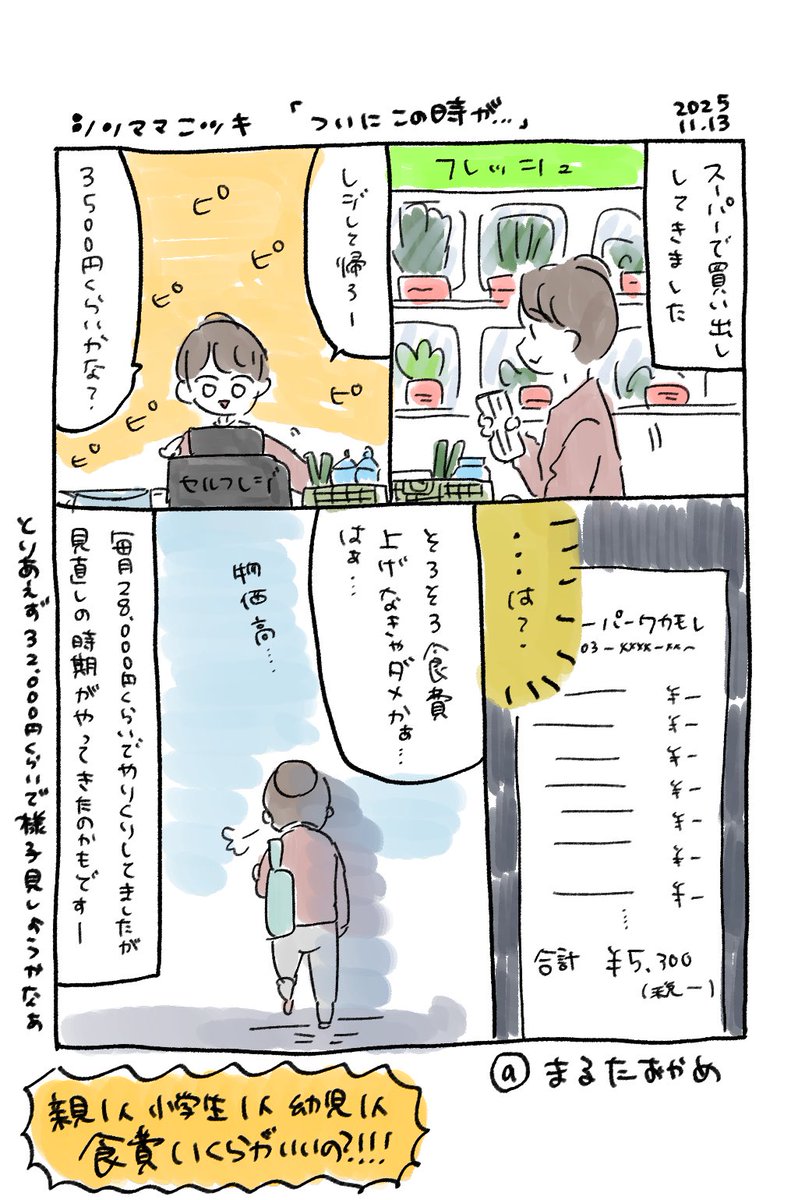 シソママニッキ 「ついにこの時が…」
2025
11.13
スーパーで買い出し
してきました
フレッシュ
レジして帰ろー
ピロ
ピロ
ピロ
ピロ
ピロ
ピロ
3500円くらいかな?
セルフレジ
・・・は?
ーパーワカモレ
03-xxxx-xx~
¥ー
¥ー
¥ー
¥ー
¥ー
¥ー
¥ー
合計 ¥5,300
(税ー)
そろそろ食費
上げなきゃダメかぁ…
はぁ…
物価高…
毎月28,000円くらいでやりくりしてましたが
見直しの時期がやってきたのかもですー
とりあえず32,000円くらいで様子見しようかなぁ
@まるたおかめ
親1人 小学生1人 幼児1人
食費いくらがいいの?!!!